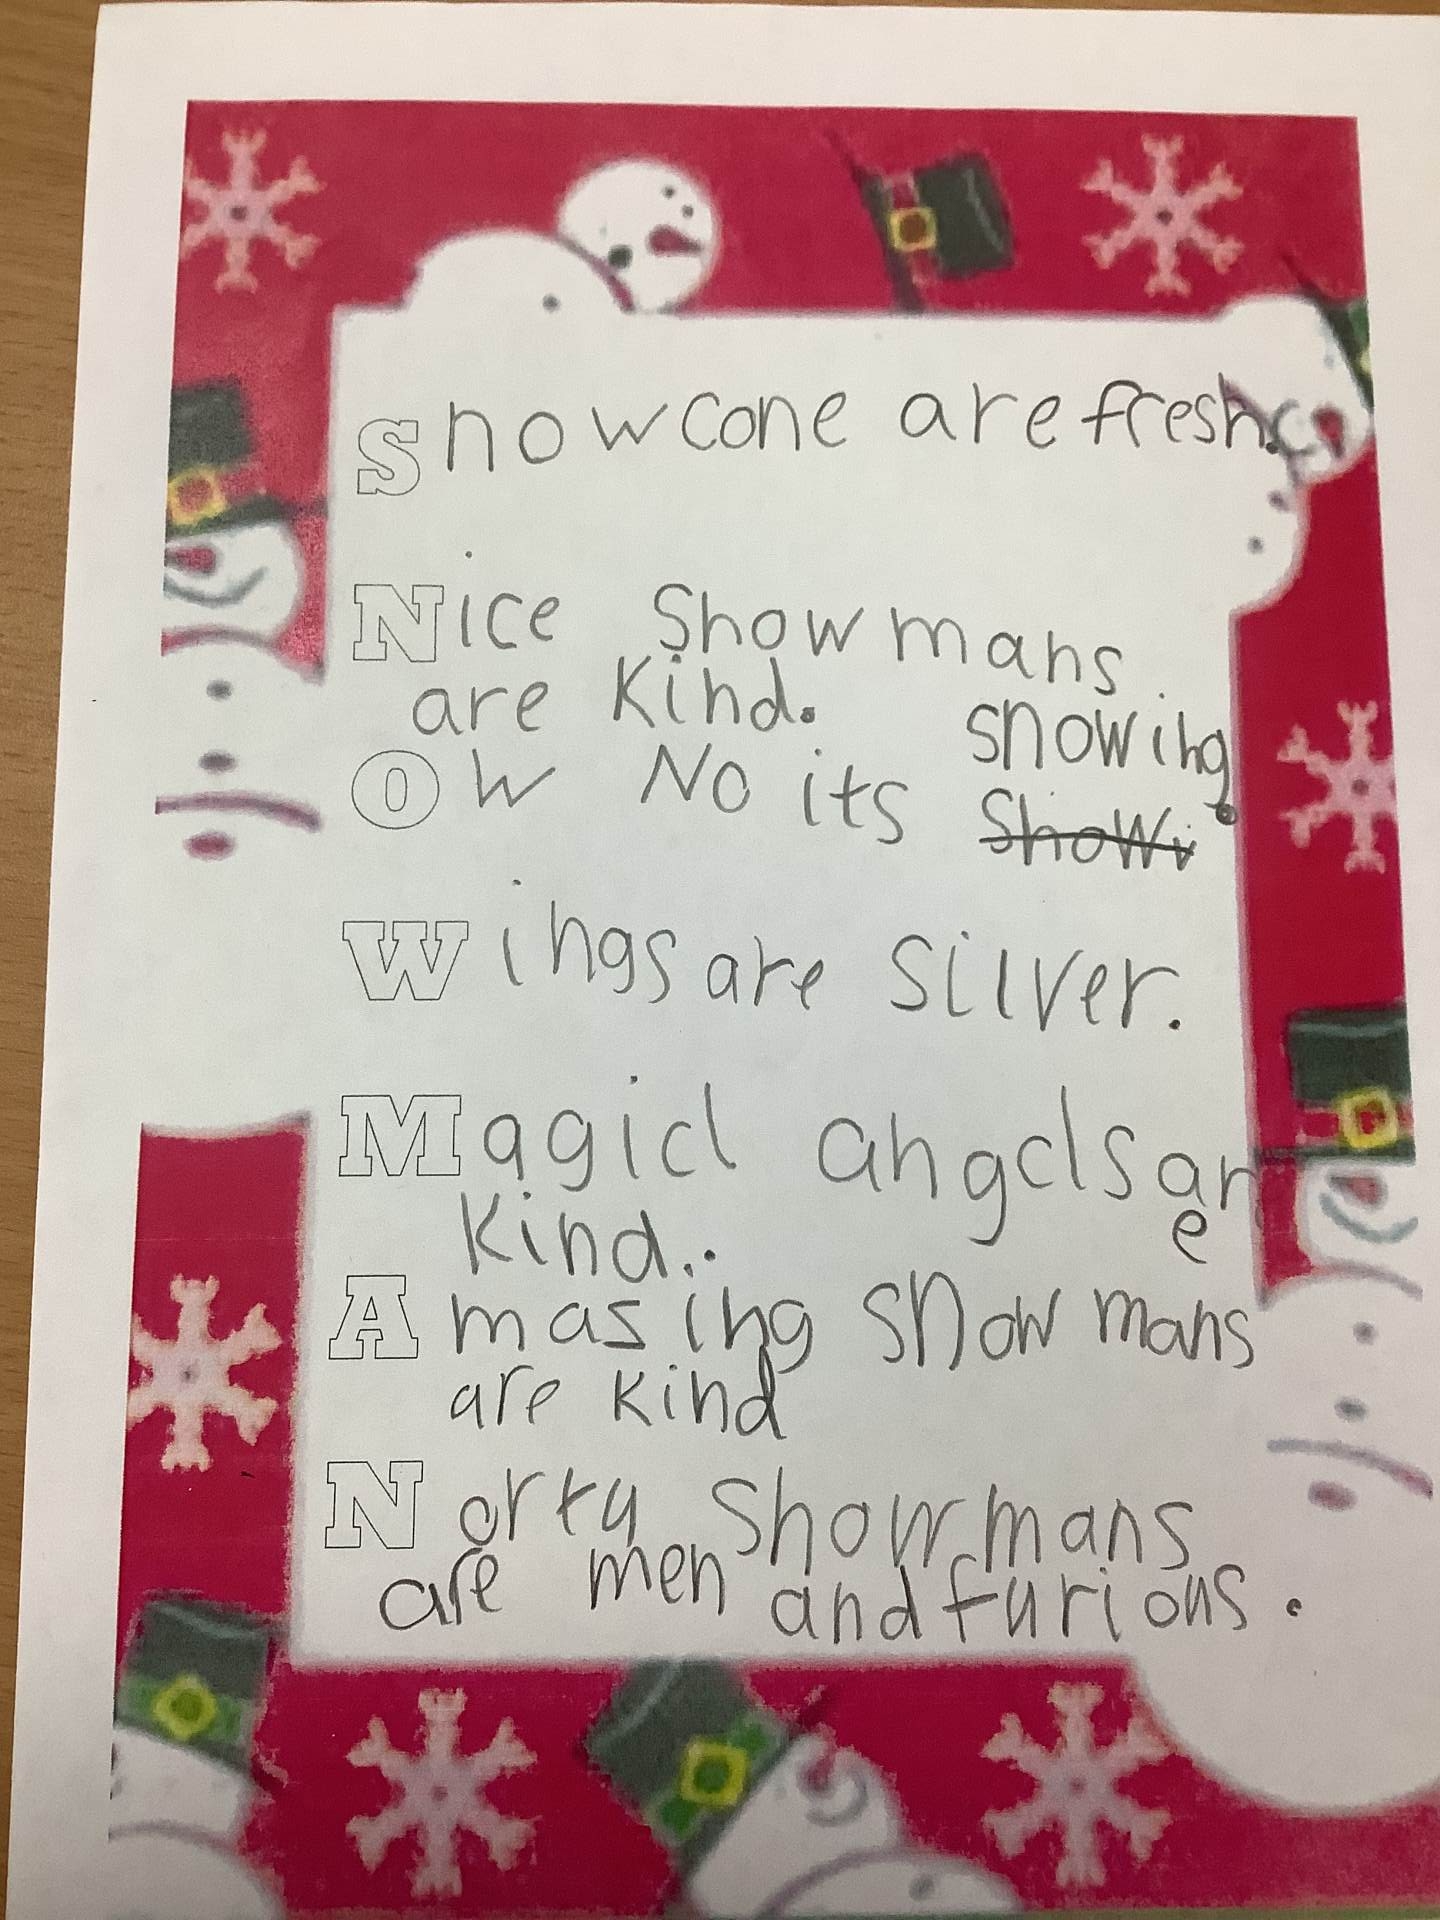 Snowcone are fresh.
Nice Snowmans
are kind.
Ow No its snowing.
Snowi
Wings are silver.
Magicl angels are
kind..
Amasing snowmans
are kind
Norty Snowmans
are men and furious.